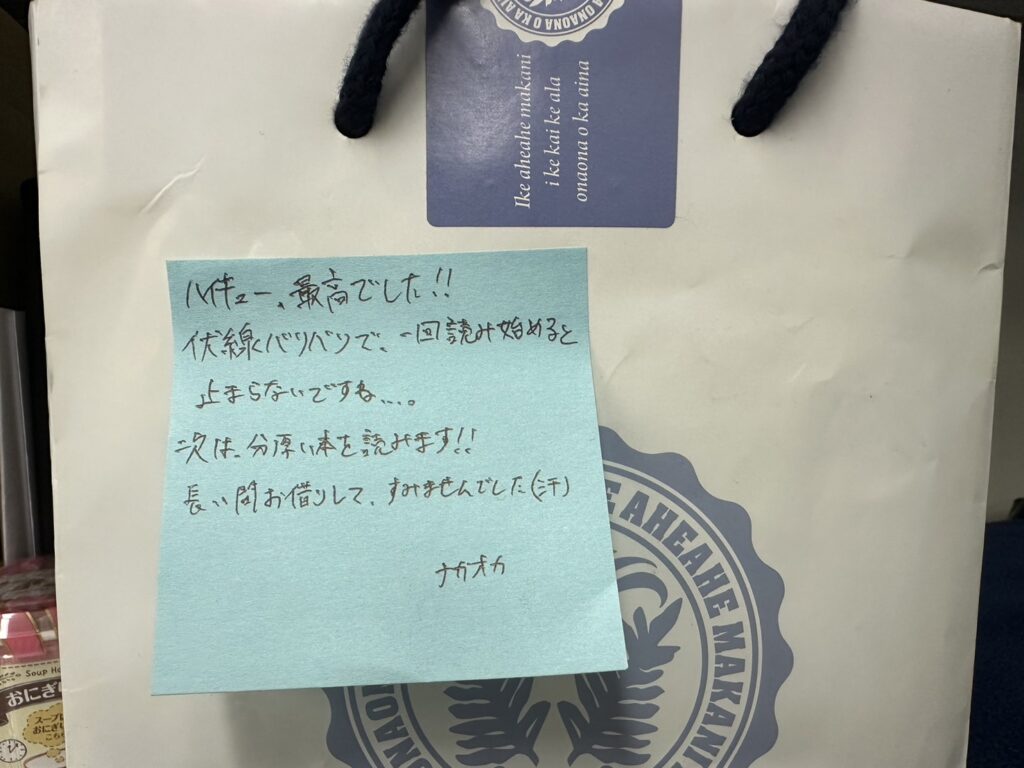 A ONAONA O KA AI
Ike aheahe makani
i ke kai ke ala
onaona o ka aina
ハイキュー、最高でした!!
伏線バリバリで、一回読み始めると
止まらないですね....。
次は、分厚い本を読みます!!
長い間お借りして、すみませんでした(汗)
ナガオカ
E AHEAHE MAKANI
ONAO
Soup Ho
おにぎ
スープに
おにぎ
こち